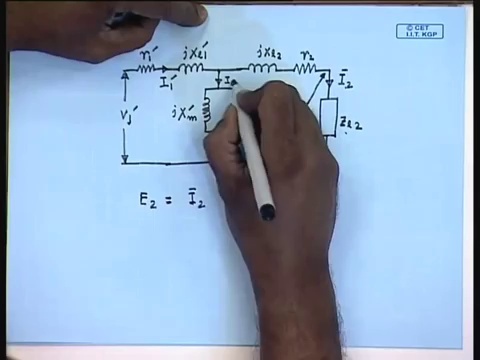 © CET
I.I.T. KGP
r₁′ jXℓ₁′ jXℓ₂ r₂
I₁′ I₀ Ī₂
V₁′ jX′m Zℓ₂
E₂ = Ī₂